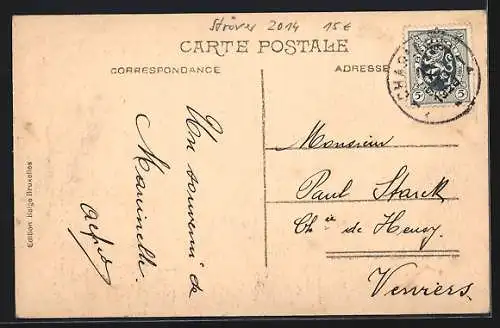 Ströver 2014 15 €
CARTE POSTALE
CORRESPONDANCE
ADRESSE
Un souvenir de
Marcinelle.
Alfred
Monsieur
Paul Starck
Ch ée de Heusy.
Verviers.
Edition Belge Bruxelles
5 5